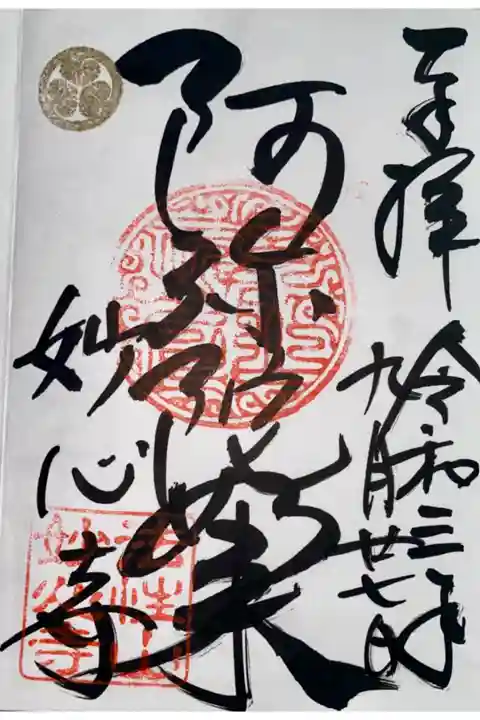 奉拝
令和三年
九月廿七日
阿弥陀如来
妙心寺